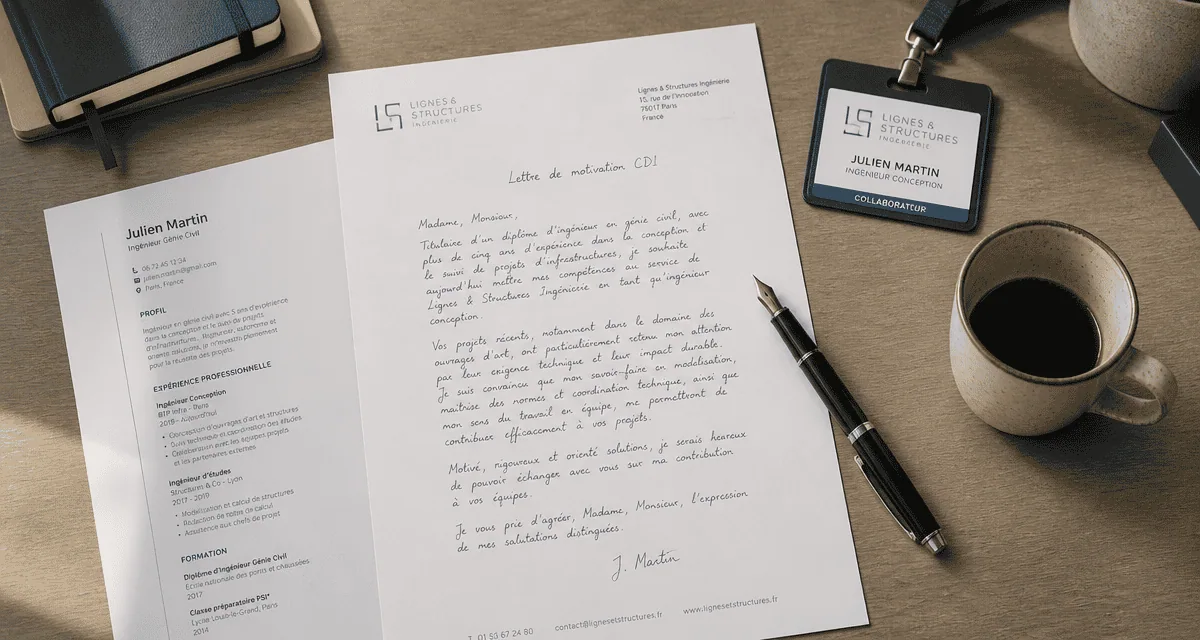 Julien Martin
Ingénieur Génie Civil
julien.martin@gmail.com
Paris, France
PROFIL
Ingénieur en génie civil avec 5 ans d'expérience
dans la conception et le suivi de projets
d'infrastructures. Rigoureux, autonome et
orienté solutions, je m'investis pleinement
pour la réussite des projets.
EXPÉRIENCE PROFESSIONNELLE
Ingénieur Conception
BTP Infra - Paris
2019 - Aujourd'hui
• Conception d'ouvrages d'art et structures
• Suivi technique et coordination des études
• Collaboration avec les équipes projets
et les partenaires externes
Ingénieur d'études
Structures & Co - Lyon
2017 - 2019
• Modélisation et calcul de structures
• Rédaction de notes de calcul
• Assistance aux chefs de projet
FORMATION
Diplôme d'Ingénieur Génie Civil
École nationale des ponts et chaussées
2017
Classe préparatoire PSI*
Lycée Louis-le-Grand, Paris
2014
LIGNES &
STRUCTURES
INGÉNIERIE
Lignes & Structures Ingénierie
15, rue de l'Innovation
75017 Paris
France
Lettre de motivation CDI
Madame, Monsieur,
Titulaire d'un diplôme d'ingénieur en génie civil, avec
plus de cinq ans d'expérience dans la conception et
le suivi de projets d'infrastructures, je souhaite
aujourd'hui mettre mes compétences au service de
Lignes & Structures Ingénierie en tant qu'ingénieur
conception.
Vos projets récents, notamment dans le domaine des
ouvrages d'art, ont particulièrement retenu mon attention
par leur exigence technique et leur impact durable.
Je suis convaincu que mon savoir-faire en modélisation,
maîtrise des normes et coordination technique, ainsi que
mon sens du travail en équipe, me permettront de
contribuer efficacement à vos projets.
Motivé, rigoureux et orienté solutions, je serais heureux
de pouvoir échanger avec vous sur ma contribution
à vos équipes.
Je vous prie d'agréer, Madame, Monsieur, l'expression
de mes salutations distinguées.
J. Martin
contact@ligneselstructures.fr
www.ligneselstructures.fr
LIGNES &
STRUCTURES
INGÉNIERIE
JULIEN MARTIN
INGÉNIEUR CONCEPTION
COLLABORATEUR